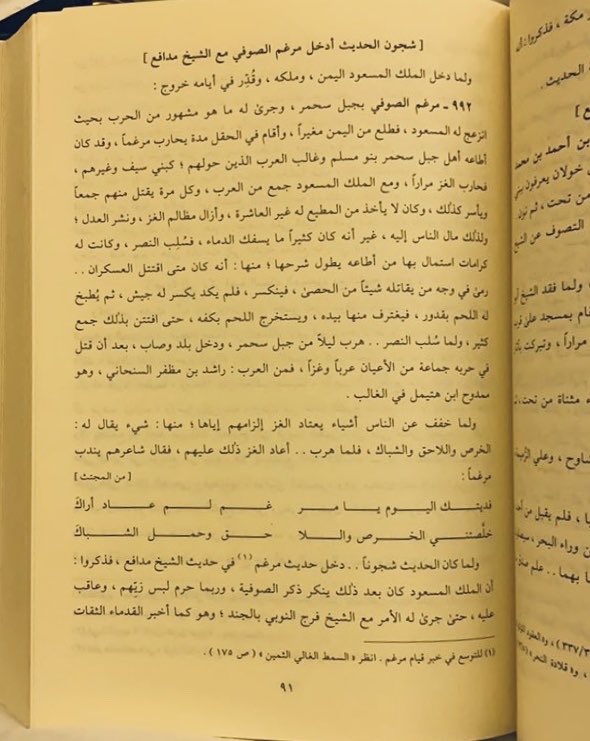 [ شجون الحديث أدخل مرغم الصوفي مع الشيخ مدافع ]
ولما دخل الملك المسعود اليمن ، وملكه ، وقُدِّر في أيامه خروج :
٩٩٢ ـ مرغم الصوفي بجبل سحمر ، وجرىٰ له ما هو مشهور من الحرب بحيث
انزعج له المسعود ، فطلع من اليمن مغيراً ، وأقام في الحقل مدة يحارب مرغماً ، وقد كان
أطاعه أهل جبل سحمر بنو مسلم وغالب العرب الذين حولهم ؛ كبني سيف وغيرهم ،
فحارب الغز مراراً ، ومع الملك المسعود جمع من العرب ، وكل مرة يقتل منهم جمعاً
ويأسر كذلك ، وكان لا يأخذ من المطيع له غير العاشرة ، وأزال مظالم الغز ، ونشر العدل ؛
ولذلك مال الناس إليه ، غير أنه كان كثيراً ما يسفك الدماء ، فسُلِب النصر ، وكانت له
كرامات استمال بها من أطاعه يطول شرحها ؛ منها : أنه كان متى اقتتل العسكران . .
رمىٰ في وجه من يقاتله شيئاً من الحصىٰ ، فينكسر ، فلم يكد يكسر له جيش ، ثم يُطبخ
له اللحم بقدور ، فيغترف منها بيده ، ويستخرج اللحم بكفه ، حتى افتتن بذلك جمع
كثير ، ولما سُلب النصر . . هرب ليلاً من جبل سحمر ، ودخل بلد وصاب ، بعد أن قتل
في حربه جماعة من الأعيان عرباً وغزاً ، فمن العرب : راشد بن مظفر السنحاني ، وهو
ممدوح ابن هتيمل في الغالب .
ولما خفف عن الناس أشياء يعتاد الغز إلزامهم إياها ؛ منها : شيء يقال له :
الخرص واللاحق والشباك ، فلما هرب . . أعاد الغز ذلك عليهم ، فقال شاعرهم يندب
مرغماً : [من المجتث]
فديتـك اليـوم يـا مـر غـم لـم عـاد أراك
خلَّصتنـي الخـرص والـلا حـق وحمـل الشبـاك
ولما كان الحديث شجوناً . . دخل حديث مرغم (١) في حديث الشيخ مدافع ، فذكروا :
أن الملك المسعود كان بعد ذلك ينكر ذكر الصوفية ، وربما حرم لبس زيّهم ، وعاقب
عليه ، حتىٰ جرىٰ له الأمر مع الشيخ فرج النوبي بالجند ؛ وهو كما أخبر القدماء الثقات
(١) للتوسع في خبر قيام مرغم . انظر « السمط الغالي الثمين » ( ص ١٧٥ ) .
٩١
مكة ، فذكروا : أن
الحديث .
بن أحمد بن محمد
خولان يعرفون ببني
من تحت ، ثم نون
التصوف عن الشيخ
ولما فقد الشيخ
مراراً ، وتبركت
مثناة من تحت ،
، وعلي
، فلم يقبل من
من وراء البحر ،
بهما . . علم